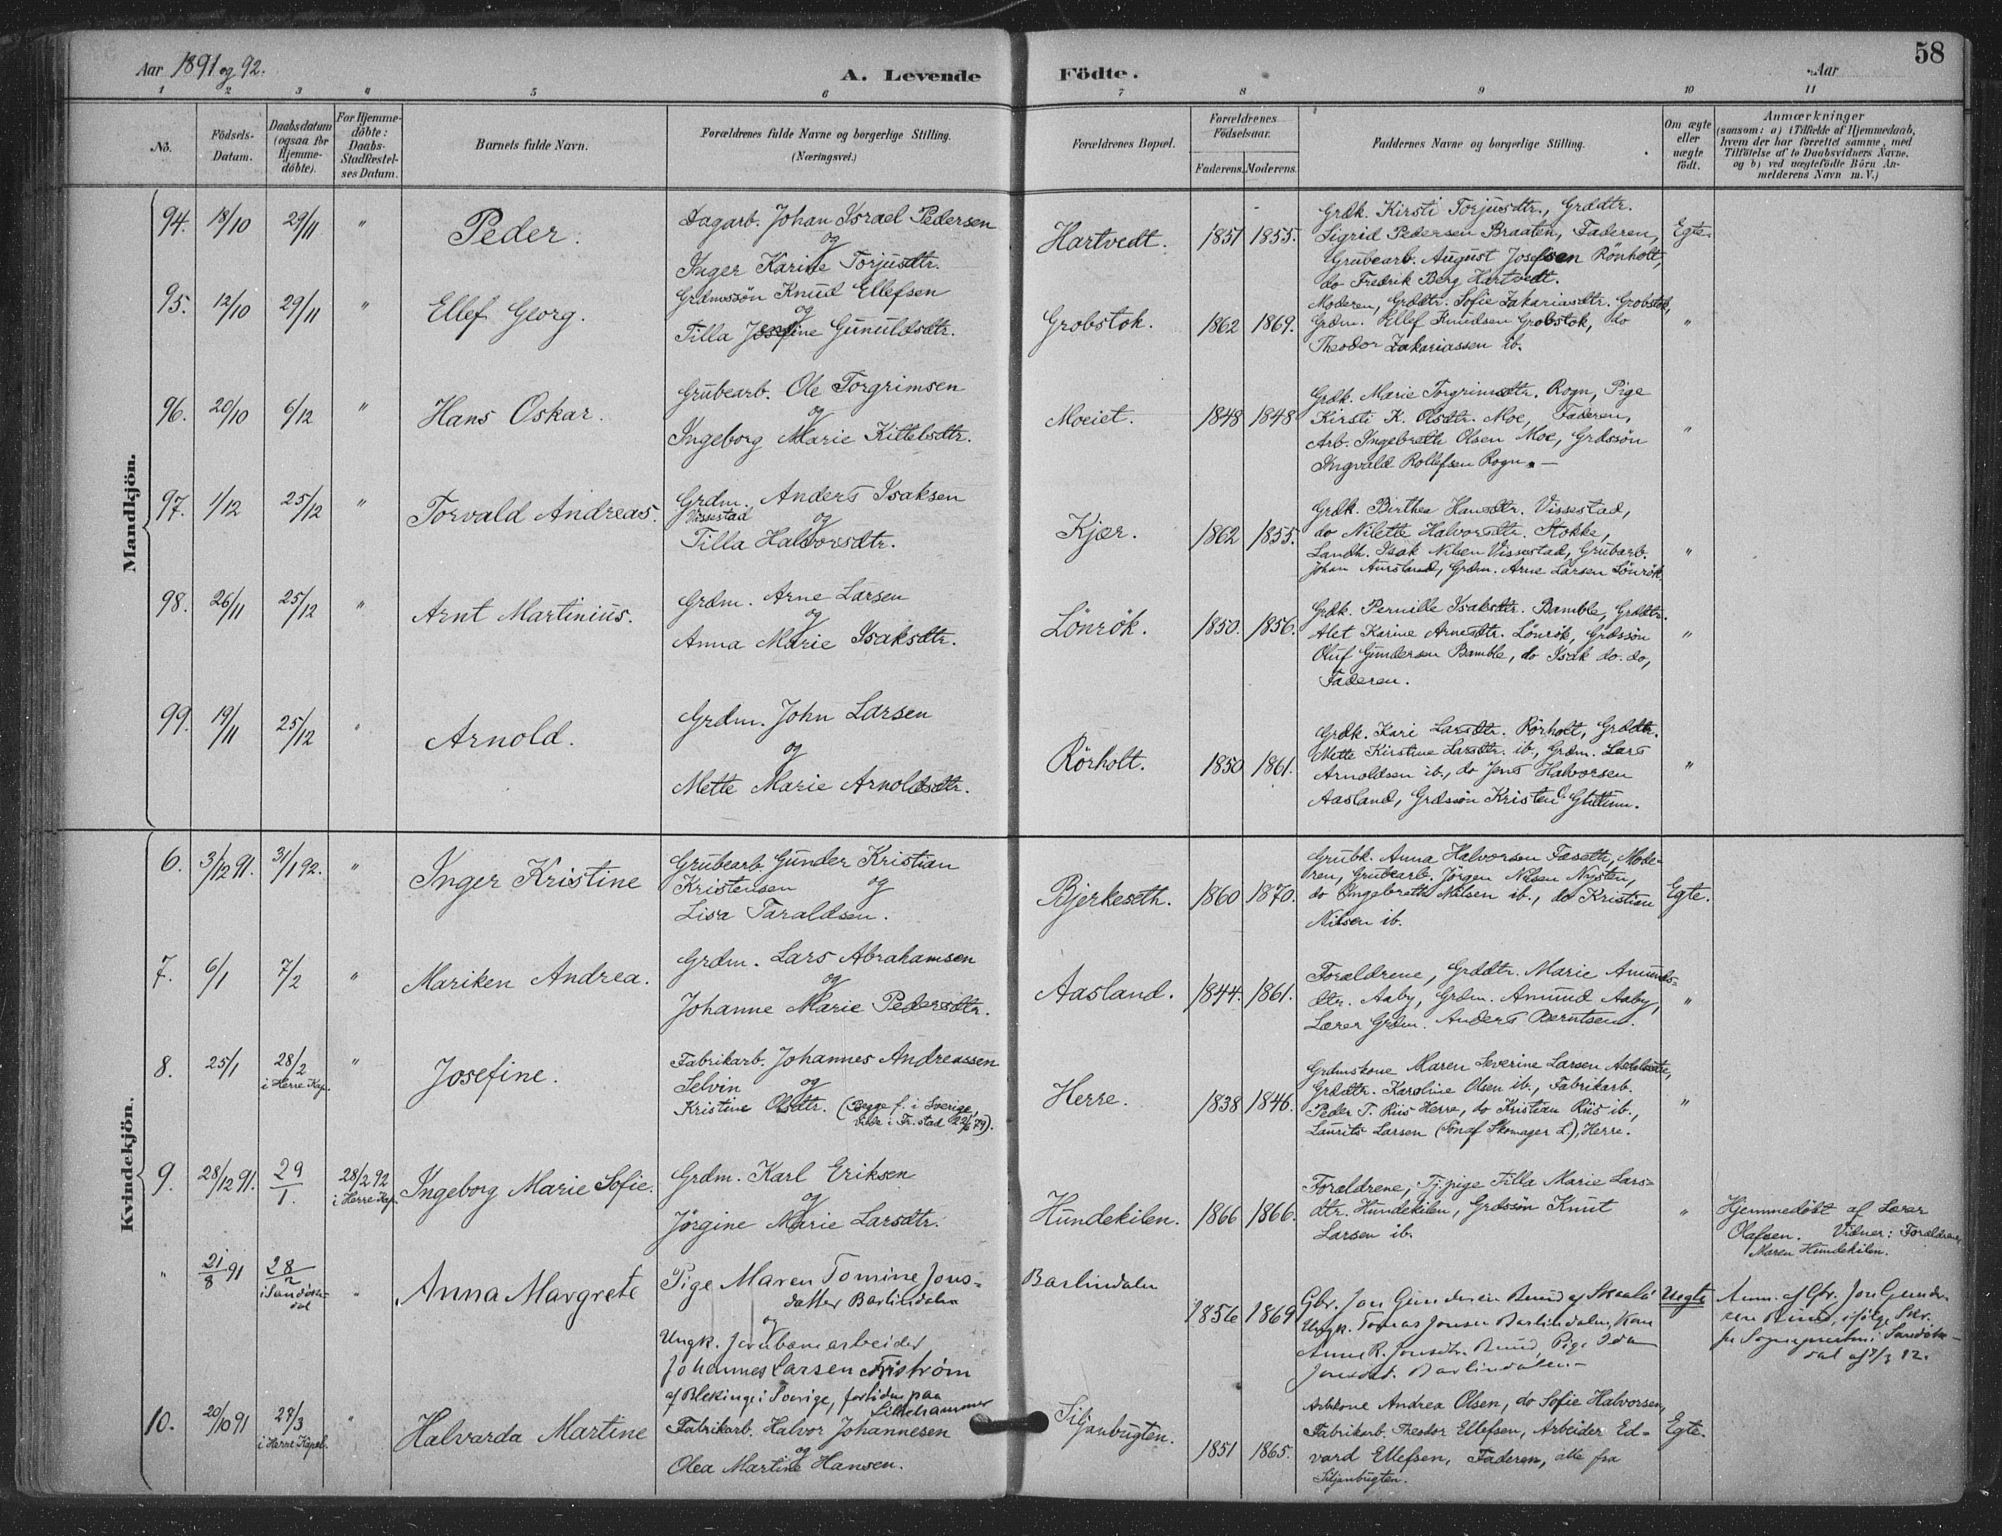 Aar 1891 og 92.
A. Levende Födte.
Aar
58
1 2 3 4 5 6 7 8 9 10 11
No.
Födsels-
Datum.
Daabsdatum
(ogsaa for
Hjemme-
döbte).
For Hjemme-
döbte:
Daabs-
Stadfæstel-
ses Datum.
Barnets fulde Navn.
Forældrenes fulde Navne og borgerlige Stilling.
(Næringsvei.)
Forældrenes Bopæl.
Forældrenes
Födselsaar.
Faderens. Moderens.
Faddernes Navne og borgerlige Stilling.
Om ægte
eller
uægte
født.
Anmærkninger
(saasom: a) i Tilfælde af Hjemmedaab,
hvem der har forrettet samme, med
Tilföielse af to Daabsvidners Navne,
og b) ved uægtefödte Börn An-
melderens Navn m. V.)
Mandkjön.
94. 18/10 29/11 " Peder.
Dagarb. Johan Israel Pedersen
og
Inger Karine Torjusdtr.
Hartvedt. 1851 1855.
Grdk. Kirsti Torjusdtr., Grddtr.
Sigrid Pedersen Braaten, Faderen,
Grubearb. August Josefsen Rönholt,
do Fredrik Berg Hartvedt.
Egte.
95. 12/10 29/11 " Ellef Georg.
Grdmssön Knud Ellefsen
og
Tilla Josefine Gunuldsdtr.
Grobstok. 1862 1869.
Moderen, Grddtr. Sofie Zakariasdtr. Grobstok,
Grdm. Ellef Knudsen Grobstok, do
Theodor Zakariassen ib.
"
96. 20/10 6/12 " Hans Oskar.
Grubearb. Ole Torgrimsen
og
Ingeborg Marie Kittelsdtr.
Moeiet. 1848 1848
Grdk. Marie Torgrimsdtr. Rogn, Pige
Kirsti K. Olsdtr. Moe, Faderen,
Arb. Ingebreth Olsen Moe, Grdssön
Ingvald Rollefsen Rogn. —
"
97. 1/12 25/12 " Torvald Andreas.
Grdm. Anders Isaksen
Vissestad og
Tilla Halvorsdtr.
Kjær. 1862 1855.
Grdk. Birthea Hansdtr. Vissestad,
do Nilette Halvorsdtr. Stokke,
Landh. Isak Nilsen Vissestad, Grubarb.
Johan Aursland, Grdm. Arne Larsen Lönrök
"
98. 26/11 25/12 " Arnt Martinius.
Grdm. Arne Larsen
og
Anna Marie Isaksdtr.
Lönrök. 1850. 1856.
Grdk. Pernille Isaksdtr. Bamble, Grddtr.
Alet Karine Arnesdtr. Lönrök, Grdssön
Oluf Gundersen Bamble, do Isak do. do,
Faderen.
"
99. 19/11 25/12 " Arnold.
Grdm. John Larsen
og
Mette Marie Arnoldsdtr.
Rörholt. 1850 1861.
Grdk. Kari Larsdtr. Rörholt, Grddtr.
Mette Kirstine Larsdtr. ib., Grdm. Lars
Arnoldsen ib., do Jens Halvorsen
Aasland, Grdssön Kristen O.
"
Kvindekjön.
6. 3/12 91. 31/1 92. " Inger Kristine
Grubearb. Gunder Kristian
Kristensen og
Lisa Taraldsen.
Bjerkeseth. 1860 1870.
Grubk. Anna Halvorsen Faseth, Mode-
ren, Grubearb. Jörgen Nilsen Nysten,
do Ingebreth Nilsen ib., do Kristian
Nilsen ib.
Egte.
7. 6/1 7/2 " Mariken Andrea.
Grdm. Lars Abrahamsen
og
Johanne Marie Pedersdtr.
Aasland. 1844. 1861.
Forældrene, Grddtr. Marie Amunds-
dtr. Aaby, Grdm. Amund Aaby,
Lærer Grdm. Anders Berntsen.
"
8. 25/1 28/2 i Herre Kap. " Josefine.
Fabrikarb. Johannes Andreassen
Selvin og
Kristine Olsdtr. (Begge f. i Sverige,
viede i Fr.stad 22/6 79).
Herre. 1838 1846.
Grdmskone Maren Severine Larsen
Grddtr. Karoline Olsen ib., Fabrikarb.
Peder T. Riis Herre, do Kristian Riis ib.,
Laurits Larsen (Sön af Skomager L.), Herre.
"
9. 28/12 91. 29/1. 28/2 92 i Herre Kap. Ingeborg Marie Sofie.
Grdm. Karl Eriksen
og
Jörgine Marie Larsdtr.
Hundekilen. 1866 1866.
Forældrene, Tj.pige Tilla Marie Lars-
dtr. Hundekilen, Grdssön Knut
Larsen ib.
"
Hjemmedöbt af Lærer
Olafsen. Vidner: Forældrene
Maren Hundekilen.
" 21/8 91 28/2 i Sandöke-
dal " Anna Margrete
Pige Maren Tomine Jons-
datter Barlindalen
og
Ungk. Jernbanearbeider
Johannes Larsen Friström
af Blekinge i Sverige, fortiden paa
Lillehammer
Barlindalen 1856 1869
Gbr. Jon Gundersen Rund af Skaalö
Ungk. Tomas Jonsen Barlindalen, Kone
Anne R. Jonsdtr. Rund, Pige Ida
Jonsdt. Barlindalen—
Uegte
Anm. af Gbr. Jon Gunder-
sen Rund, ifølge Skr.
fr Sognepresten i Sandöke-
dal af 7/3 92.
10. 20/10 91 27/3 i Herre Kapel. " Halvarda Martine
Fabrikarb. Halvor Johannesen
og
Olea Martine Hansen.
Siljanbugten. 1851 1865.
Arbkone Andrea Olsen, do Sofie Halvorsen,
Fabrikarb. Theodor Ellefsen, Arbeider Ed-
vard Ellefsen, Faderen, alle fra
Siljanbugten.
Egte.